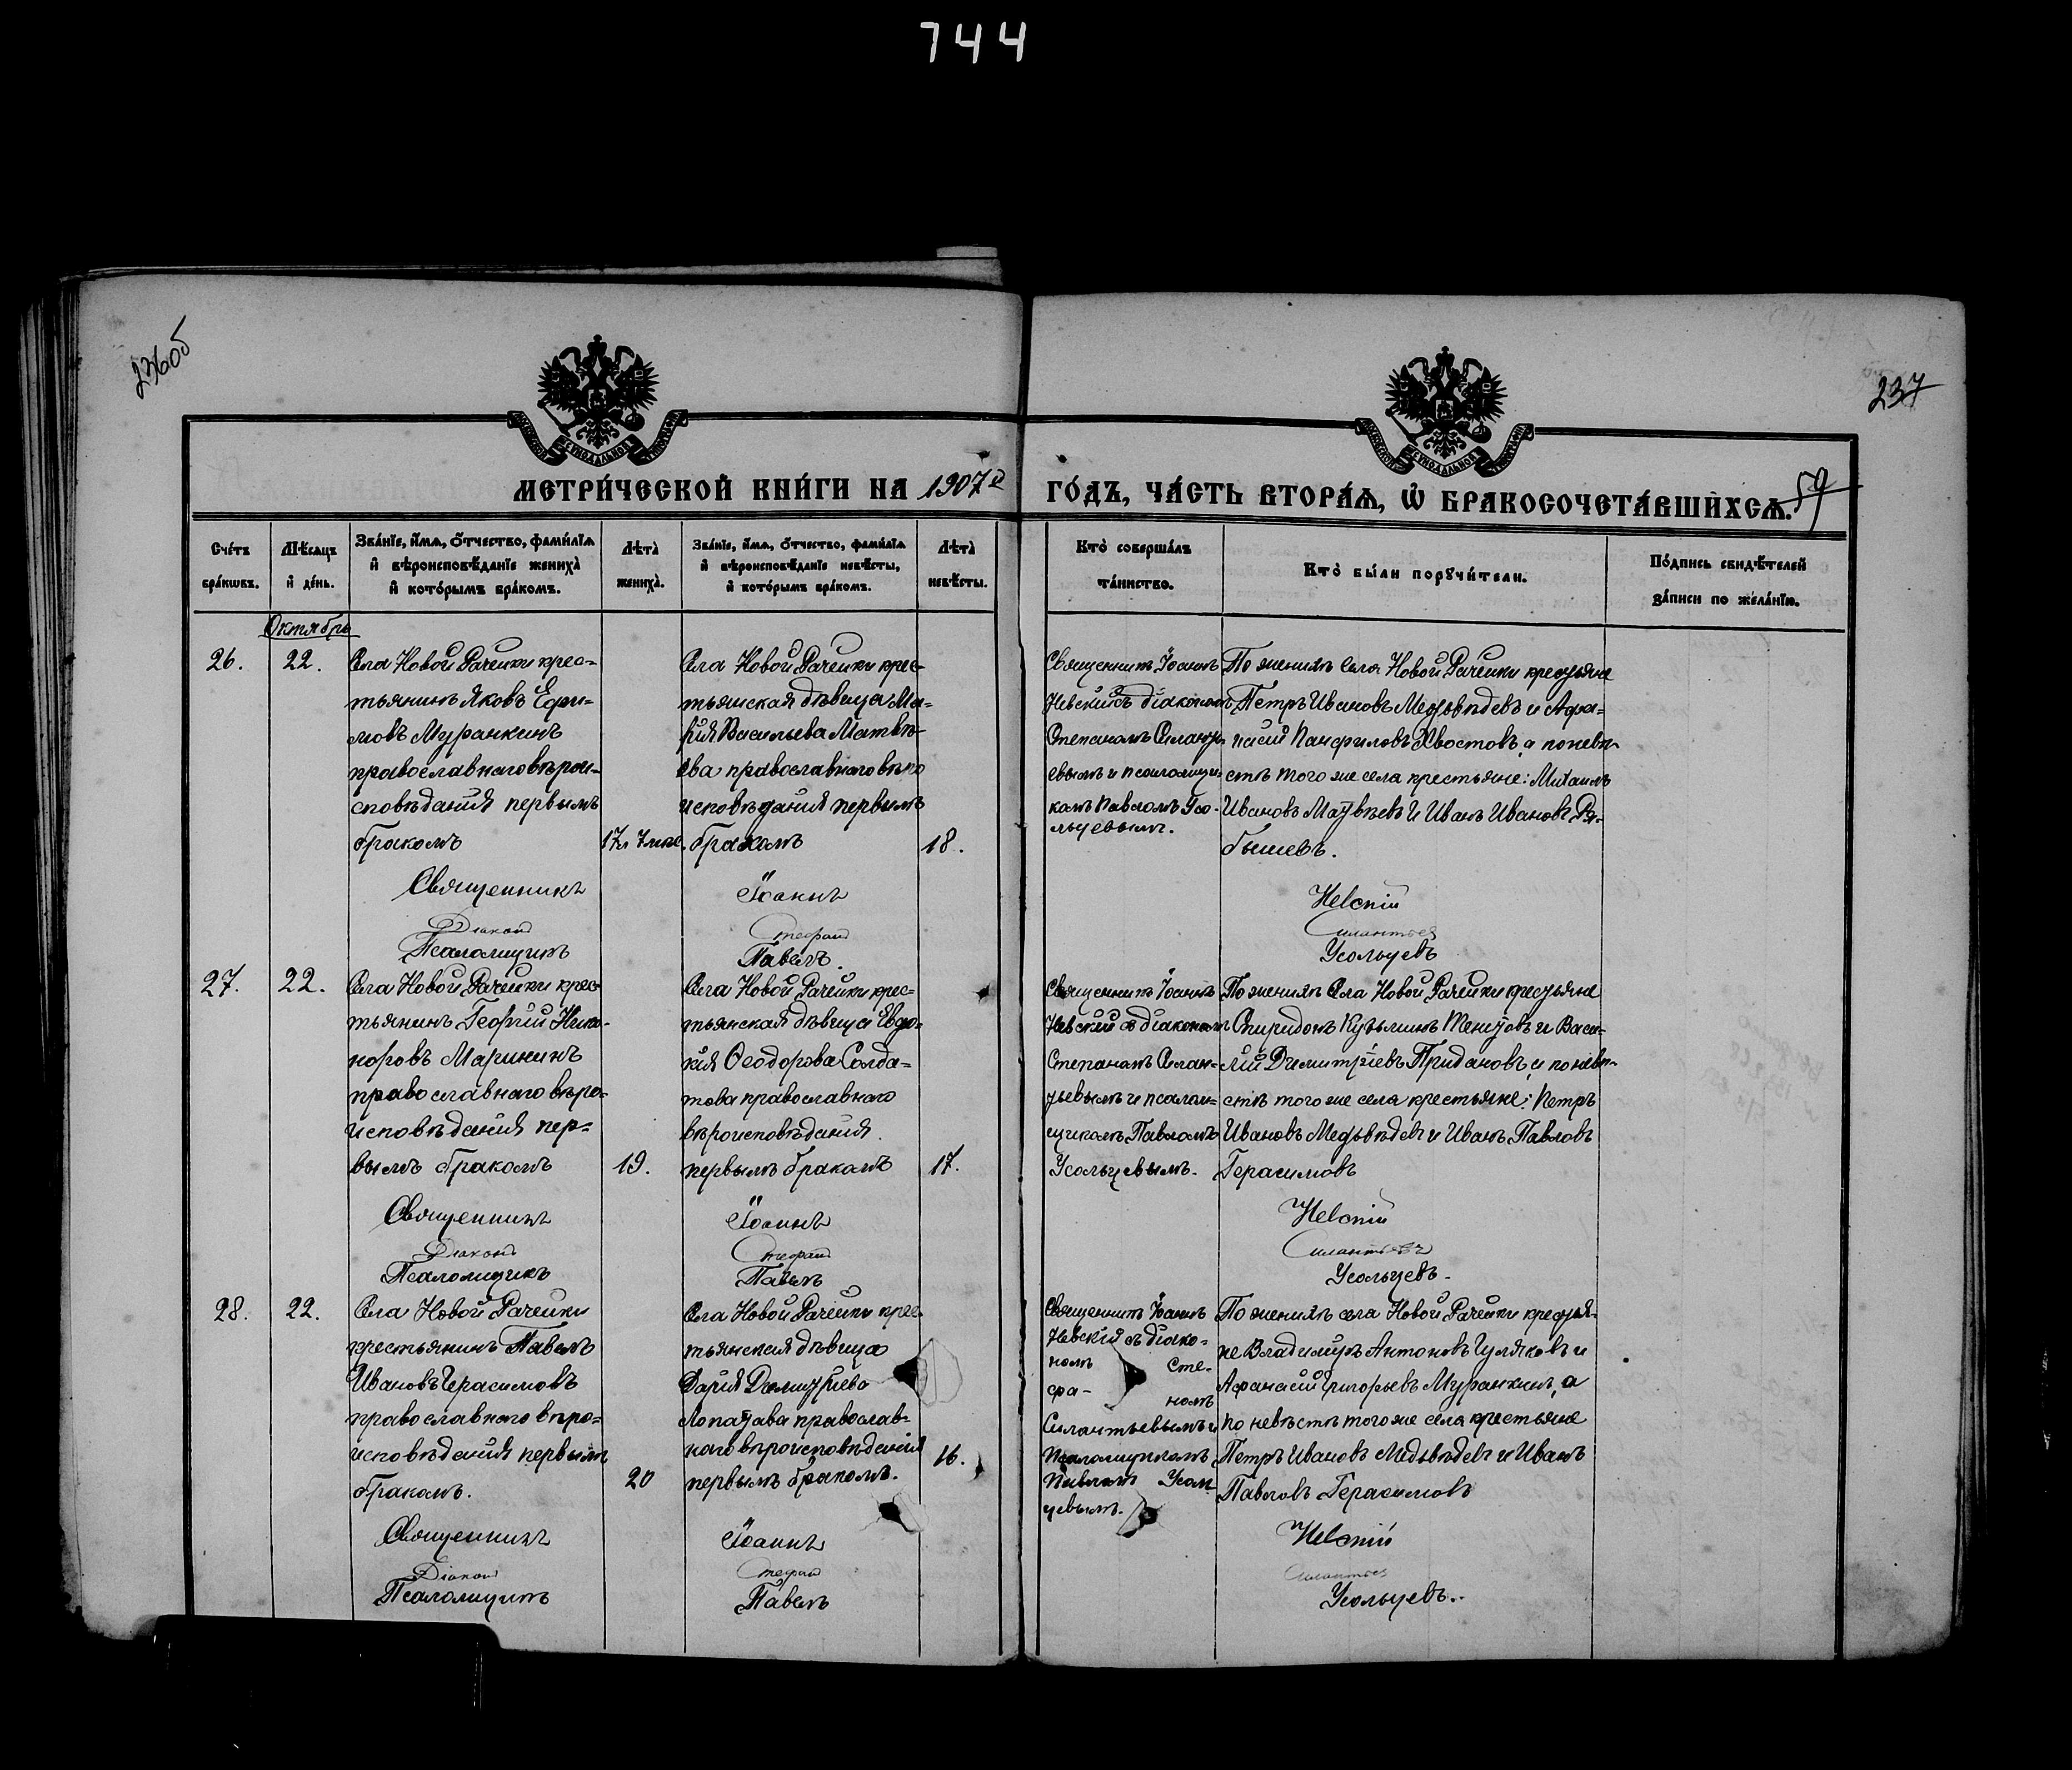 744
236об
237
59
МЕТРИ́ЧЕСКОЙ КНИ́ГИ НА 1907й ГО́ДЪ, ЧА́СТЬ ВТОРА́Я, Ѡ БРАКОСОЧЕТА́ВШИХСЯ.
Сче́тъ
бра́ковъ.
Мѣ́сяцъ
и де́нь.
Зва́нїе, и́мя, о́тчество, фами́лїя
и вѣроисповѣ́данїе жениха̀
и кото́рымъ бра́комъ.
Лѣ́та
жениха̀.
Зва́нїе, и́мя, о́тчество, фами́лїя
и вѣроисповѣ́данїе невѣ́сты,
и кото́рымъ бра́комъ.
Лѣ́та
невѣ́сты.
Кто̀ соверша́лъ
та́инство.
Кто̀ бы́ли порꙋчи́тели.
По́дпись свидѣ́телей
за́писи по жела́нїю.
Октябрь
26.
22.
Села Новой Рачейки крес=
тьянинъ Яковъ Ефи=
мовъ Муранкинъ
православнаго вѣрои=
сповѣданія первымъ
бракомъ
17л 7мѣс.
Села Новой Рачейки крес
тьянская дѣвица Ма=
рія Васильева Матвѣ=
ева православнаго вѣро
исповѣданія первымъ
бракомъ
18.
Священникъ Іоаннъ
Невскій съ діакономъ
Степаномъ Силанть
евымъ и псаломщи=
комъ Павломъ Усо-
льцевымъ.
По женихѣ села Новой Рачейки крестьяне
Петръ Ивановъ Медвѣдевъ и Афа=
насій Панфиловъ Хвостовъ, а по невѣ-
стѣ того же села крестьяне: Михаилъ
Ивановъ Матвѣевъ и Иванъ Ивановъ Ря-
бышевъ.
Священникъ Іоаннъ Невскій
Діаконъ Стефанъ Силантьев
Псаломщикъ Павелъ Усольцевъ
27.
22.
Села Новой Рачейки крес
тьянинъ Георгій Ника-
норовъ Маринкинъ
православнаго вѣро=
исповѣданія пер=
вымъ бракомъ
19.
Села Новой Рачейки крес=
тьянская дѣвица Евдо=
кія Ѳеодорова Солда=
това православнаго
вѣроисповѣданія
первымъ бракомъ
17.
Священникъ Іоаннъ
Невскій съ діакономъ
Степаномъ Силан=
тьевымъ и псалом=
щикомъ Павломъ
Усольцевымъ.
По женихѣ Села Новой Рачейки крестьяне
Спиридонъ Кузьминъ и Васи=
лій Димитріевъ Придановъ, а по невѣ-
стѣ того же села крестьяне: Петръ
Ивановъ Медвѣдевъ и Иванъ Павловъ
Герасимовъ
Священникъ Іоаннъ Невскій
Діаконъ Стефанъ Силантьевъ
Псаломщикъ Павелъ Усольцевъ.
28.
22.
Села Новой Рачейки
крестьянинъ Павелъ
Ивановъ Герасимовъ
православнаго вѣро=
исповѣданія первымъ
бракомъ.
20
Села Новой Рачейки крес
тьянская дѣвица
Дарія Димитріева
Лопатава православ=
наго вѣроисповѣданія
первымъ бракомъ.
16.
Священникъ Іоаннъ
Невскій съ діако=
номъ Сте-
фа- номъ
Силантьевымъ и
псаломщикомъ
Павломъ Усол
цевымъ.
По женихѣ села Новой Рачейки крестья-
не Владиміръ Антоновъ Гуляковъ и
Афанасій Григорьевъ Муранкинъ, а
по невѣстѣ того же села крестьяне
Петръ Ивановъ Медвѣдевъ и Иванъ
Павловъ Герасимовъ
Священникъ Іоаннъ Невскій
Діаконъ Стефанъ Силантьев
Псаломщикъ Павелъ Усольцевъ.